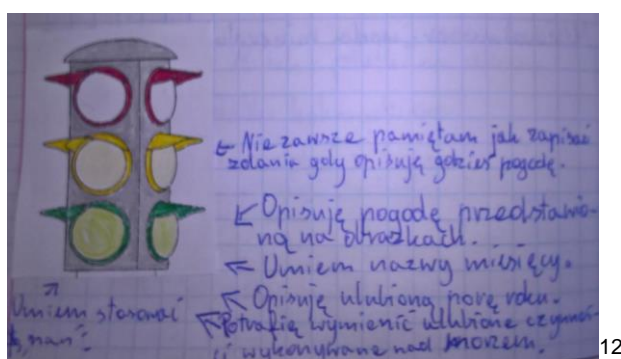 ← Nie zawsze pamiętam jak zapisać
zdania gdy opisuję gdzieś pogodę.
↙ Opisuję pogodę przedstawio-
ną na obrazkach.
← Umiem nazwy miesięcy.
↖ Opisuję ulubioną porę roku.
↖ Potrafię wymienić ulubione czynnoś-
ci wykonywane nad morzem.
↗
Umiem stosować
12